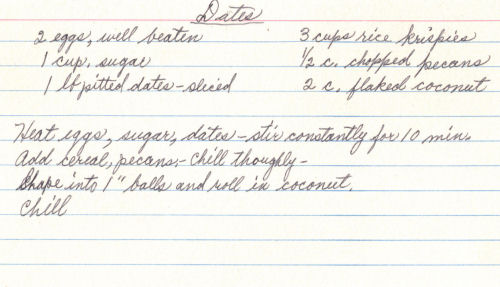 Dates
2 eggs, well beaten 3 cups rice krispies
1 cup. sugar 1/2 c. chopped pecans
1 lb pitted dates - sliced 2 c. flaked coconut
Heat eggs, sugar, dates - stir constantly for 10 min.
Add cereal, pecans, - Chill thoughly -
Shape into 1" balls and roll in coconut.
Chill